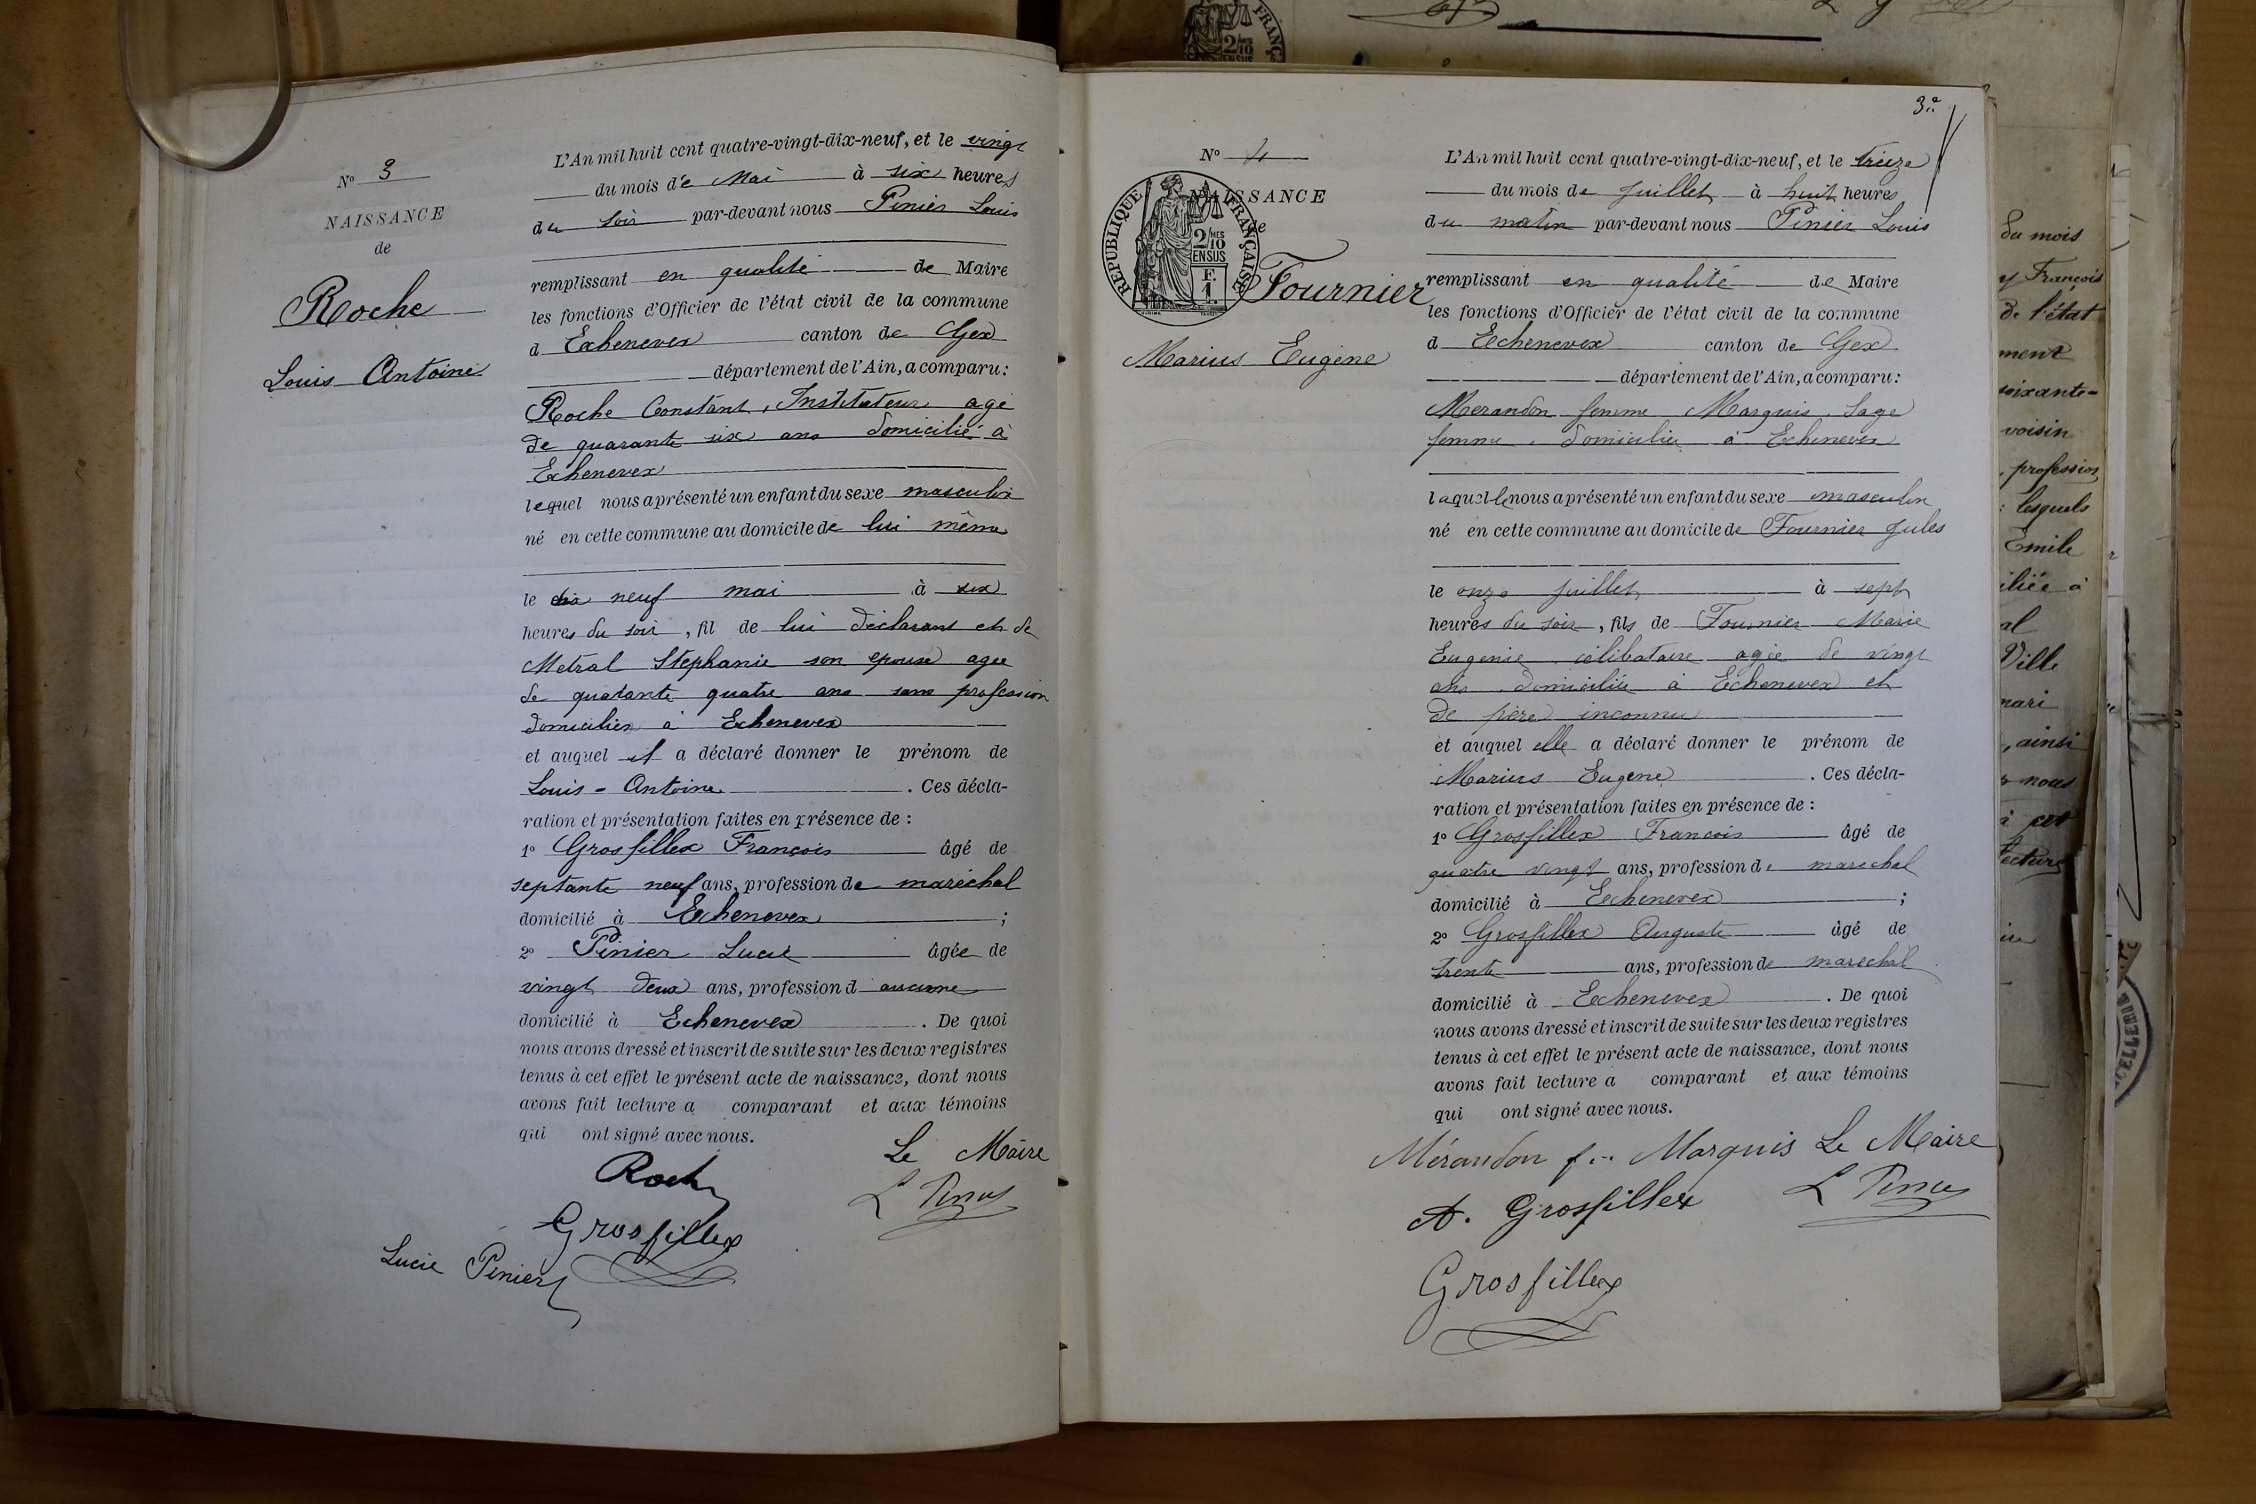 N° 3
NAISSANCE
de
Roche
Louis Antoine
L'An mil huit cent quatre-vingt-dix-neuf, et le vingt
du mois de Mai à six heures
du soir par-devant nous Pinier Louis
remplissant en qualité de Maire
les fonctions d'Officier de l'état civil de la commune
d Echenevex canton de Gex
département de l'Ain, a comparu :
Roche Constant, Instituteur agé
de quarante six ans domicilié à
Echenevex
lequel nous a présenté un enfant du sexe masculin
né en cette commune au domicile de lui même
le dix neuf mai à six
heures du soir, fil de lui déclarant et de
Metral Stephanie son epouse agee
de quatante quatre ans sans profession
domicilies à Echenevex
et auquel il a déclaré donner le prénom de
Louis - Antoine. Ces décla-
ration et présentation faites en présence de :
1° Grosfillex François âgé de
septante neuf ans, profession de maréchal
domicilié à Echenevex ;
2° Pinier Lucie âgée de
vingt deux ans, profession d aucune
domicilié à Echenevex. De quoi
nous avons dressé et inscrit de suite sur les deux registres
tenus à cet effet le présent acte de naissance, dont nous
avons fait lecture a comparant et aux témoins
qui ont signé avec nous.
Le Maire
Roch
L Pinier
Grosfillex
Lucie Pinier
3e
N° 4
NAISSANCE
de
RÉPUBLIQUE FRANÇAISE
2/10 MES
EN SUS
F.
1.
Fournier
Marius Eugène
L'An mil huit cent quatre-vingt-dix-neuf, et le treize
du mois de juillet à huit heures
du matin par-devant nous Pinier Louis
remplissant en qualité de Maire
les fonctions d'Officier de l'état civil de la commune
d Echenevex canton de Gex
département de l'Ain, a comparu :
Merandon femme Marquis, Sage
femme, domiciliée à Echenevex
laquelle nous a présenté un enfant du sexe masculin
né en cette commune au domicile de Fournier Jules
le onze juillet à sept
heures du soir, fils de Fournier Marie
Eugenie, célibataire agée de vingt
ans, domiciliée à Echenevex et
de père inconnu
et auquel elle a déclaré donner le prénom de
Marius Eugene. Ces décla-
ration et présentation faites en présence de :
1° Grosfillex Francois âgé de
quatre vingt ans, profession de marechal
domicilié à Echenevex ;
2° Grosfillex Auguste âgé de
trente ans, profession de marechal
domicilié à Echenevex. De quoi
nous avons dressé et inscrit de suite sur les deux registres
tenus à cet effet le présent acte de naissance, dont nous
avons fait lecture a comparant et aux témoins
qui ont signé avec nous.
Mérandon f.. Marquis Le Maire
A. Grosfillex L Pinier
Grosfillex
du mois
y François
de l'état
ment
soixante-
voisin
, profession
: lesquels
Emile
iliée à
al
Ville
mari
, ainsi
nous
à cet
lecture